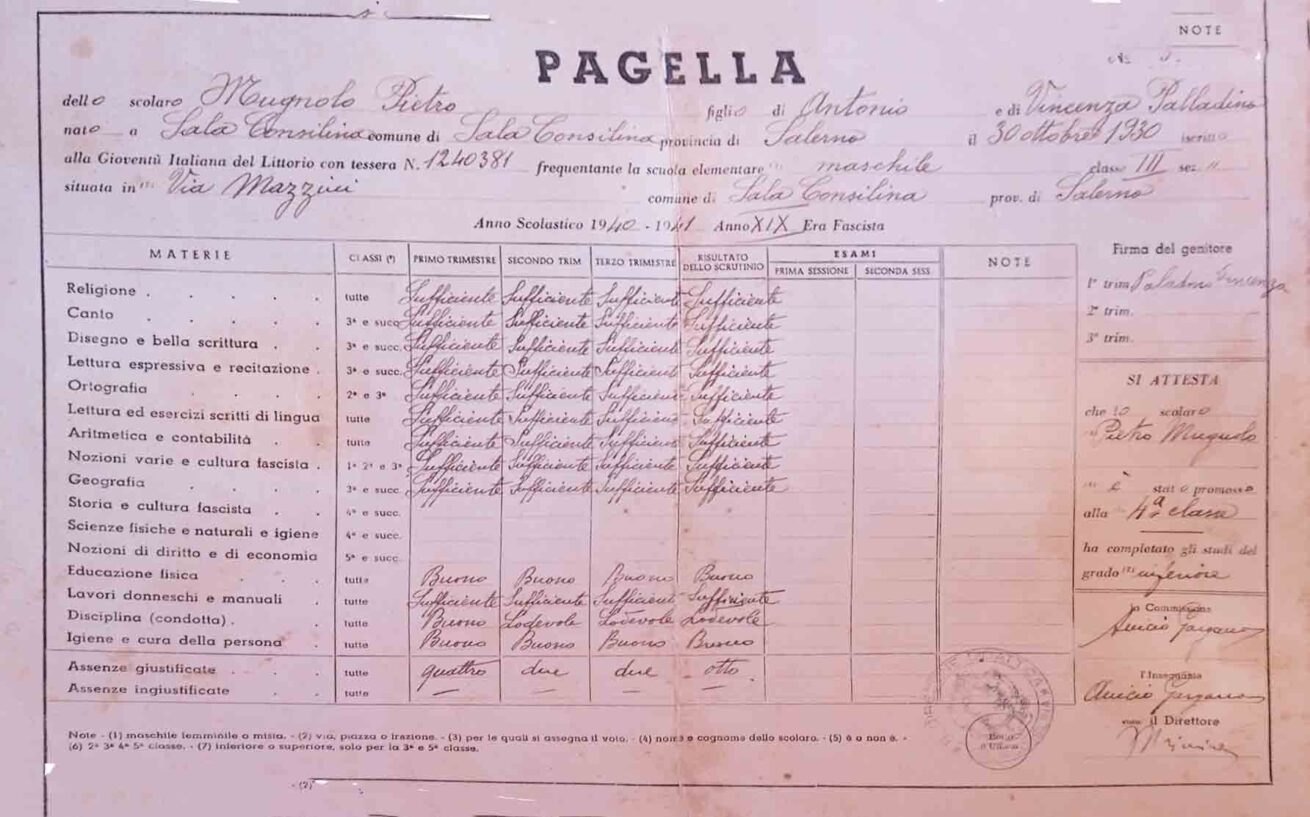 NOTE
PAGELLA
dello scolaro Mugnolo Pietro figlio di Antonio e di Vincenza Palladino
nato a Sala Consilina comune di Sala Consilina provincia di Salerno il 30 ottobre 1930 iscritto
alla Gioventù Italiana del Littorio con tessera N. 1240381 frequentante la scuola elementare maschile classe III sez "
situata in Via Mazzini comune di Sala Consilina prov. di Salerno
Anno Scolastico 1940 - 1941 Anno XIX Era Fascista
MATERIE CLASSI (*) PRIMO TRIMESTRE SECONDO TRIM TERZO TRIMESTRE RISULTATO DELLO SCRUTINIO ESAMI PRIMA SESSIONE SECONDA SESS NOTE
Religione . . . . . tutte Sufficiente Sufficiente Sufficiente Sufficiente
Canto . . . . . 3ª e succ. Sufficiente Sufficiente Sufficiente Sufficiente
Disegno e bella scrittura . . 3ª e succ. Sufficiente Sufficiente Sufficiente Sufficiente
Lettura espressiva e recitazione . 3ª e succ. Sufficiente Sufficiente Sufficiente Sufficiente
Ortografia . . . . 2ª e 3ª Sufficiente Sufficiente Sufficiente Sufficiente
Lettura ed esercizi scritti di lingua tutte Sufficiente Sufficiente Sufficiente Sufficiente
Aritmetica e contabilità . . tutte Sufficiente Sufficiente Sufficiente Sufficiente
Nozioni varie e cultura fascista . 1ª 2ª e 3ª Sufficiente Sufficiente Sufficiente Sufficiente
Geografia . . . . 3ª e succ. Sufficiente Sufficiente Sufficiente Sufficiente
Storia e cultura fascista . . 4ª e succ.
Scienze fisiche e naturali e igiene 4ª e succ.
Nozioni di diritto e di economia 5ª e succ.
Educazione fisica . . . tutte Buono Buono Buono Buono
Lavori donneschi e manuali . tutte Sufficiente Sufficiente Sufficiente Sufficiente
Disciplina (condotta) . . . tutte Buono Lodevole Lodevole Lodevole
Igiene e cura della persona . tutte Buono Buono Buono
Assenze giustificate . . . tutte quattro due due otto
Assenze ingiustificate . . tutte — — — —
Firma del genitore
1º trim. Paladino Vincenza
2º trim.
3º trim.
SI ATTESTA
che lo scolaro
Pietro Mugnolo
è stato promosso
alla 4ª classe
ha completato gli studi del
grado inferiore
la Commissione
l'Insegnante
il Direttore
Bollo d'Ufficio
Note - (1) maschile femminile o mista. - (2) via, piazza o frazione. - (3) per le quali si assegna il voto. - (4) nome e cognome dello scolaro. - (5) è o non è. -
(6) 2ª 3ª 4ª 5ª classe. - (7) inferiore o superiore, solo per la 3ª e 5ª classe.
- (2)